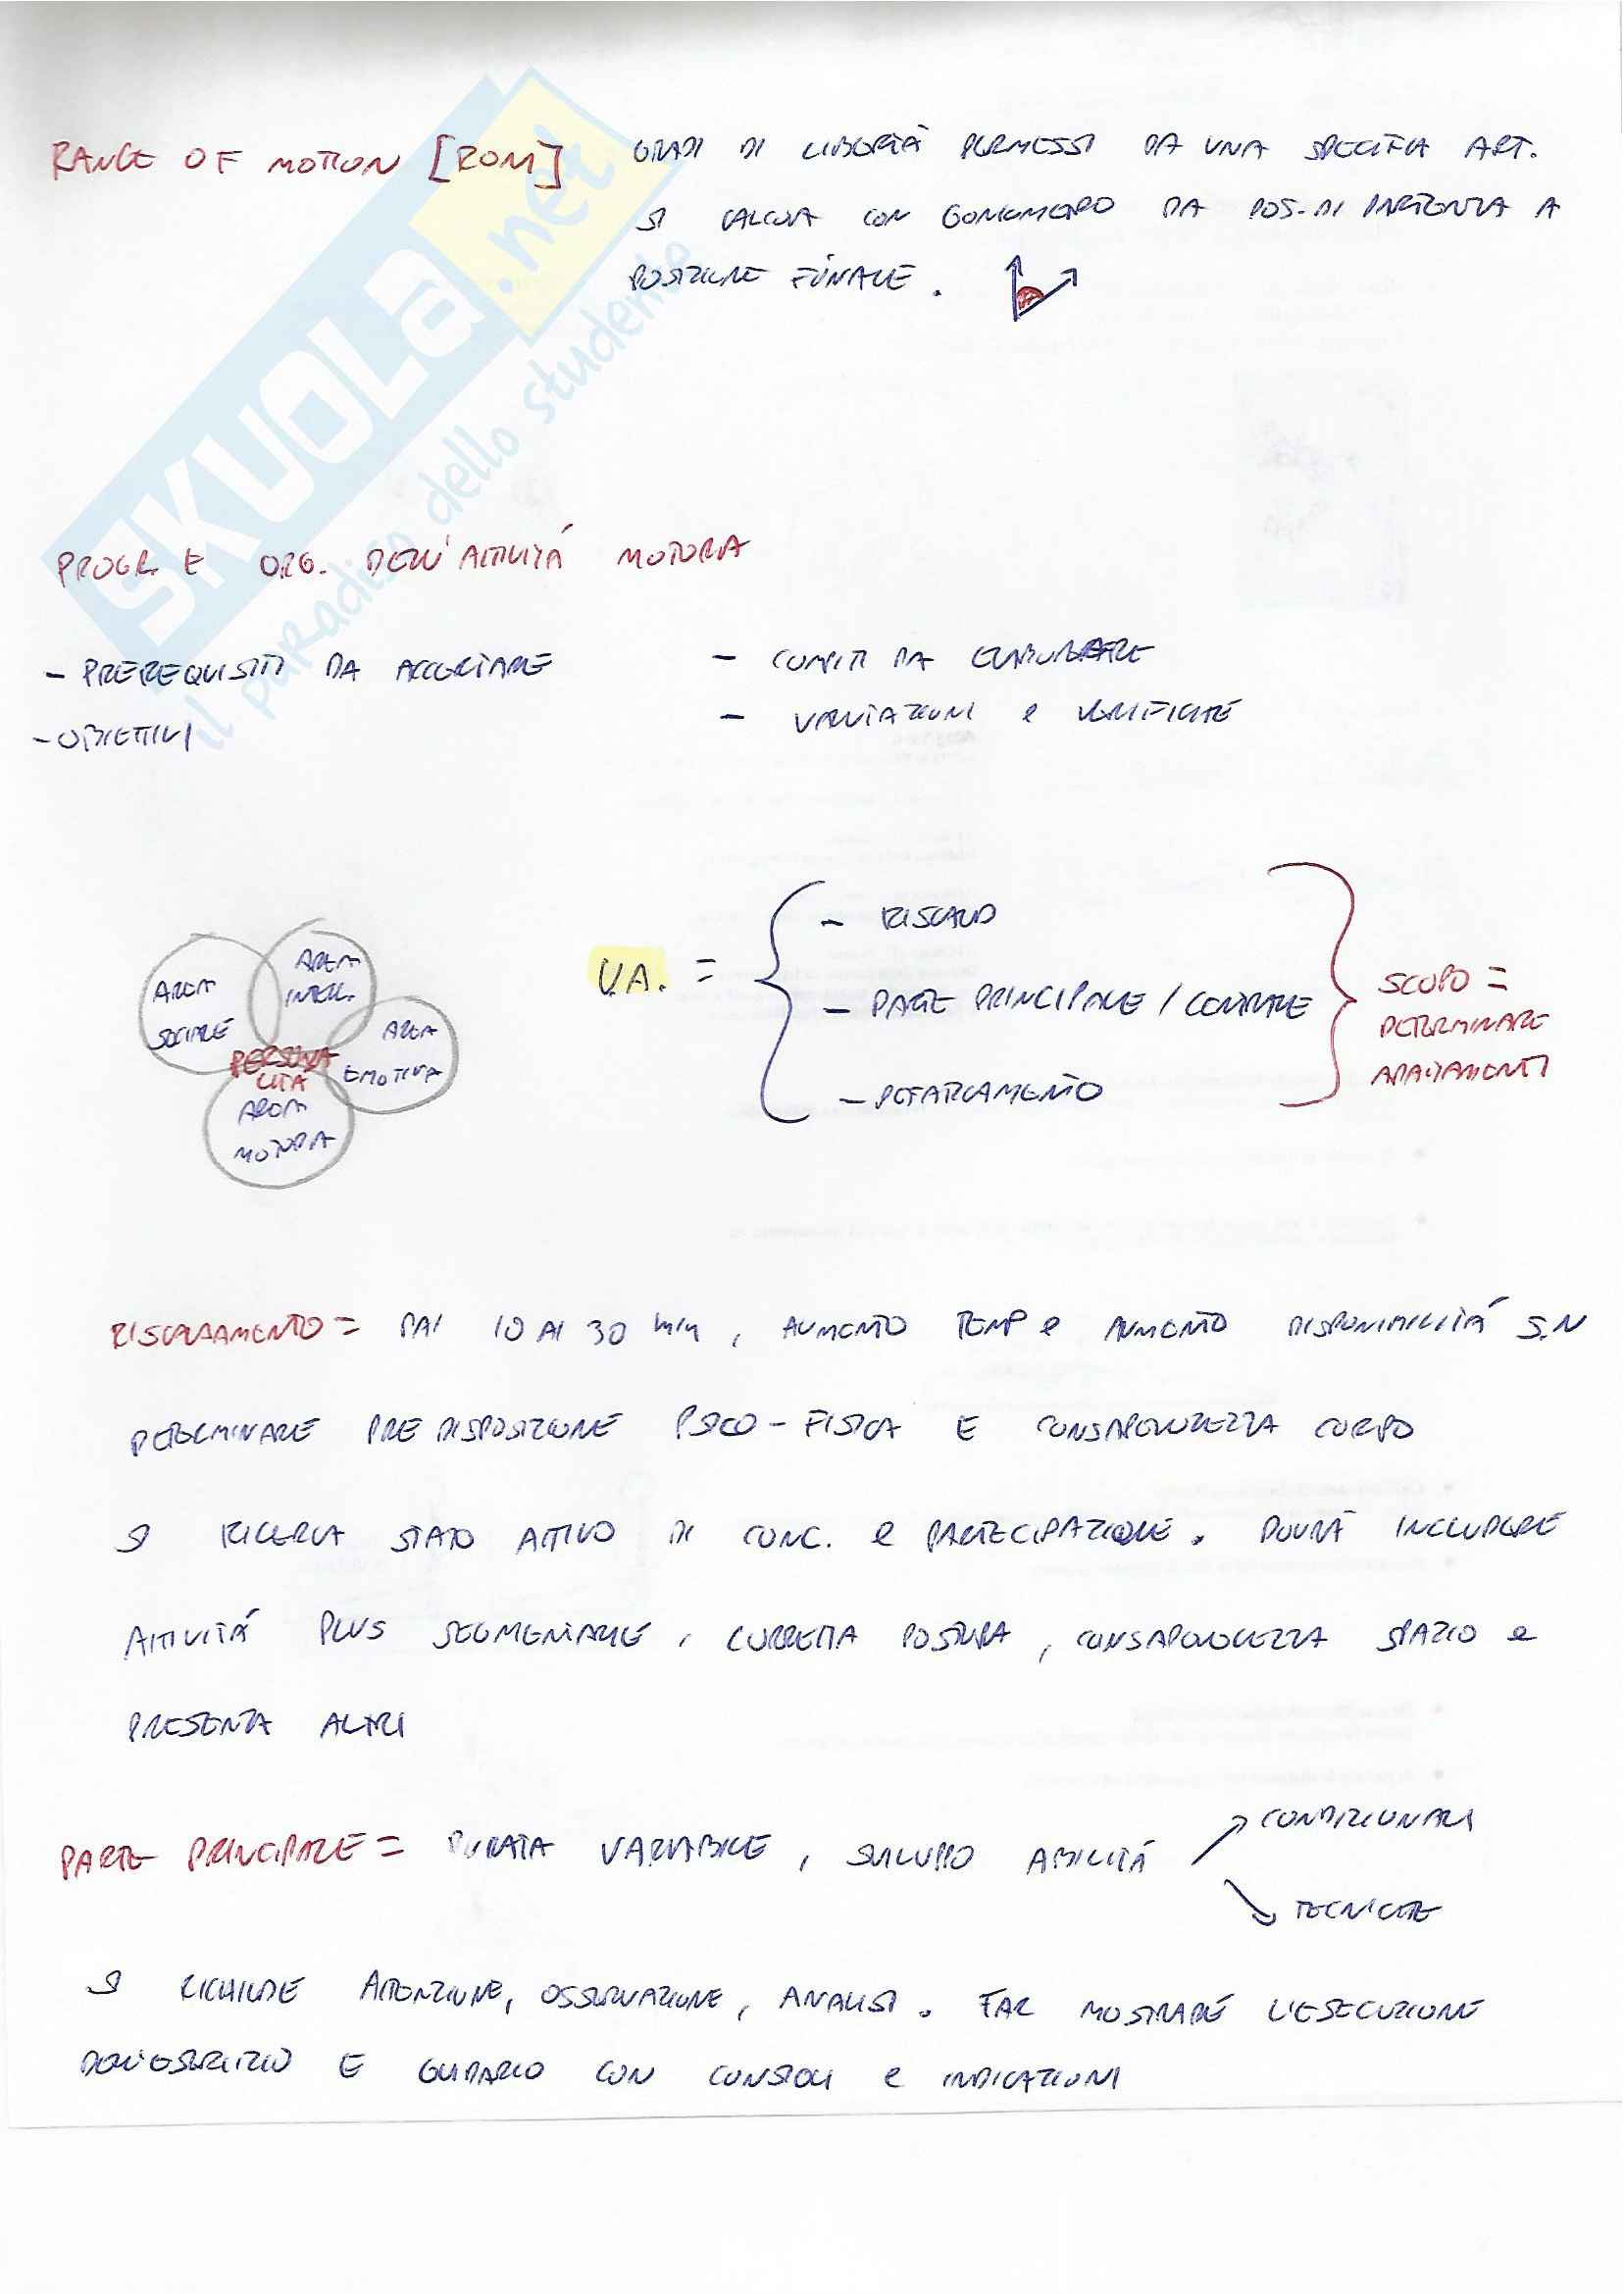 RANGE OF MOTION [ROM] GRADI DI LIBERTÀ PERMESSI DA UNA SPECIFICA ART.
SI CALCOLA CON GONIOMETRO DA POS. DI PARTENZA A
POSIZIONE FINALE.
SKUOLA.net
il paradiso dello studente
PROGR. E ORG. DELL'ATTIVITÁ MOTORIA
- PREREQUISITI DA ACCERTARE
- OBIETTIVI
- COMPITI DA ELABORARE
- VALUTAZIONI e VERIFICHE
AREA
SOCIALE
AREA
INTELL.
AREA
EMOTIVA
PERSONA
LITÀ
AREA
MOTORIA
U.A. =
- RISCALD
- PARTE PRINCIPALE / CENTRALE
- DEFATICAMENTO
SCOPO =
DETERMINARE
ADATTAMENTI
RISCALDAMENTO = DAI 10 AI 30 min, AUMENTO TEMP e AUMENTO DISPONIBILITÁ S.N
DETERMINARE PREDISPOSIZIONE PSICO-FISICA E CONSAPEVOLEZZA CORPO
SI RICERCA STATO ATTIVO DI CONC. e PARTECIPAZIONE. DOVRÀ INCLUDERE
ATTIVITÁ PLUS SEGMENTARIE, CORRETTA POSTURA, CONSAPEVOLEZZA SPAZIO e
PRESENZA ALTRI
PARTE PRINCIPALE = DURATA VARIABILE, SVILUPPO ABILITÁ
CONDIZIONALI
TECNICHE
SI RICHIEDE ATTENZIONE, OSSERVAZIONE, ANALISI. FAR MOSTRARE L'ESECUZIONE
DELL'ESERCIZIO E GUIDARLO CON CONSIGLI e INDICAZIONI